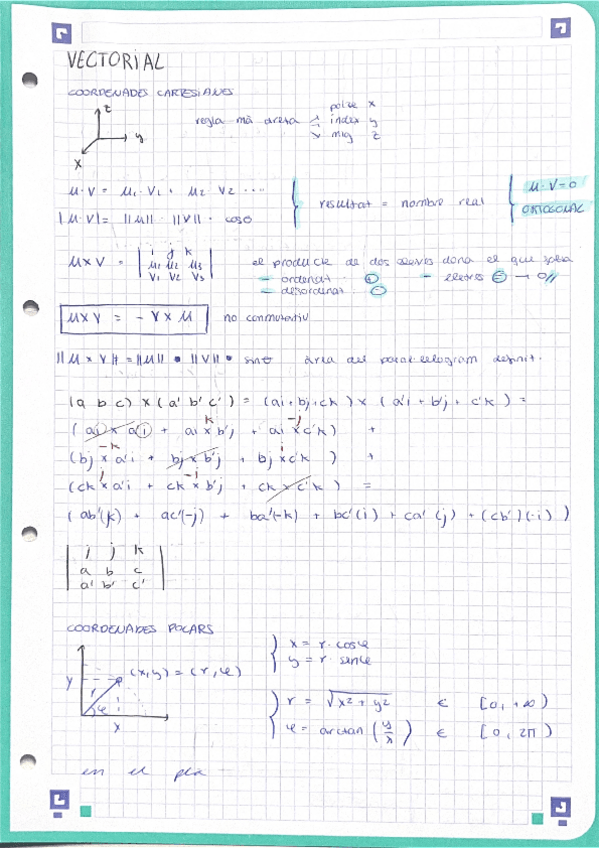 VECTORIAL
COORDENADES CARTESIANES
z
y
x
regla mà dreta
polze x
índex y
mig z
u·v = u₁·v₁ + u₂·v₂ ....
|u·v| = ||u|| · ||v|| · cosθ
resultat = nombre real
u·v=0
ORTOGONAL
u×v = | i j k
u₁ u₂ u₃
v₁ v₂ v₃ |
el producte de dos eleves dona el que
- ordenat +
- desordenat -
u×v = - v×u
no conmutatiu
||u×v|| = ||u|| · ||v|| · sinθ àrea del paral·lelogram definit.
(a b c) × (a' b' c') = (ai + bj + ck) × (a'i + b'j + c'k) =
(ai × a'i + ai × b'j + ai × c'k) +
k -j
(bj × a'i + bj × b'j + bj × c'k) +
-k i
(ck × a'i + ck × b'j + ck × c'k) =
j -i
(ab'(k) + ac'(-j) + ba'(-k) + bc'(i) + ca'(j) + (cb')(-i))
| j j k
a b c
a' b' c' |
COORDENADES POLARS
y
(x,y) = (r,φ)
r
φ
x
x = r·cosφ
y = r·sinφ
r = √x²+y² ∈ [0, +∞)
φ = arctan (y/x) ∈ [0, 2π)
en el pla